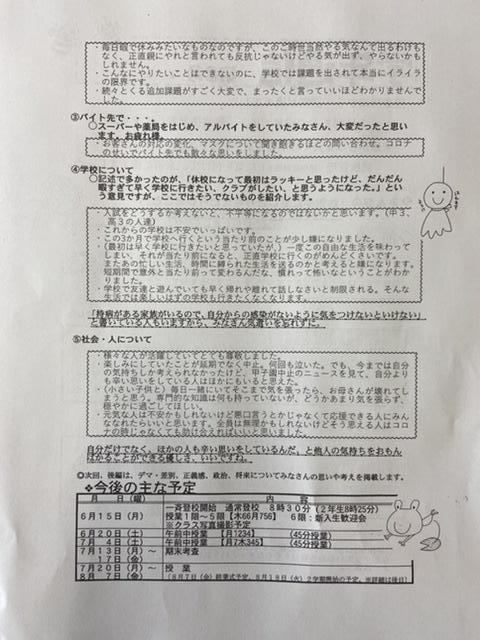 ・毎日暇で休みみたいなものなのですが、このご時世当然やる気なんて出るわけも
なく、正直親にやれと言われても反抗じゃないけどやる気が出ず、やらないかも
しれません。
・こんなにやりたいことはできないのに、学校では課題を出されて本当にイライラ
の限界です。
・続々とくる追加課題がすごく大変で、まったくと言っていいほどわかりませんで
した。
③バイト先で・・・。
○スーパーや薬局をはじめ、アルバイトをしていたみなさん、大変だったと思い
ます。お疲れ様。
・お客さんの対応の変化、マスクについて聞き飽きるほどの問い合わせ。コロナ
のせいでバイト先でも散々な思いをしました。
④学校について
○記述で多かったのが、「休校になって最初はラッキーと思ったけど、だんだん
暇すぎて早く学校に行きたい、クラブがしたい、と思うようになった。」とい
う意見ですが、ここではそうでないものを紹介します。
・入試をどうするか考えないと、不平等になるのではないかと思います。（中３、
高３の人達）
・これからの学校は不安でいっぱいです。
・この3か月で学校へ行くという当たり前のことが少し嫌になりました。
・（最初は早く学校に行きたいと思っていたが、）一度この自由な生活を味わって
しまい、それが当たり前になると、正直学校に行くのがめんどくさいです。
またあの忙しい生活、時間に縛られた生活を送るのかと考えると嫌になります。
短期間で意外と当たり前って変わるんだな、慣れって怖いなということがわか
りました。
・学校で友達と遊んでいても早く帰れや離れて話しなさいと制限される。そんな
生活では楽しいはずの学校も行きたくなくなります。
「持病がある家族がいるので、自分からの感染がないように気をつけないといけない」
と書いている人もいますから、みなさん気遣いを忘れずに。
⑤社会・人について
・様々な人が活躍していてとても尊敬しました。
・楽しみにしていたことが延期でなく中止。何回も泣いた。でも、今までは自分
の気持ちしか考えられなかったけど、甲子園中止のニュースを見て、自分より
も辛い思いをしている人はほかにもいると思えた。
・（小さい子供と）毎日一緒にいてそこまで気を張ったら、お母さんが壊れてしま
うと思う。専門的な知識は何も持っていないが、どうかあまり気を張らず、
穏やかに過ごしてほしい。
・元気な人は不安かもしれないけど悪口言うとかじゃなくて応援できる人にみん
ななれたらいいと思います。全員は無理かもしれないけどそう思える人はコロ
ナの時じゃなくても助け合えればいいと思いました。
自分だけでなく、ほかの人も辛い思いをしているんだ、と他人の気持ちをおもん
ばかることができる優しさ、いいですね。
◎次回、後編は、デマ・差別、正義感、政治、将来についてみなさんの思いや考えを掲載します。
❖今後の主な予定
月　日（曜）　内　容
６月１５日（月）　一斉登校開始　通常登校　８時３０分（２年生8時25分）
授業１限～５限【木66月756】　６限：新入生歓迎会
※クラス写真撮影予定
６月２０日（土）　午前中授業　【月1234】　（45分授業）
７月　４日（土）　午前中授業　【月7木345】　（45分授業）
７月１３日（月）～　期末考査
１７日（金）
７月２０日（月）～　授　業
８月　７日（金）　〔８月７日（金）終業式予定、８月１８日（火）２学期開始の予定。※詳細は後日〕